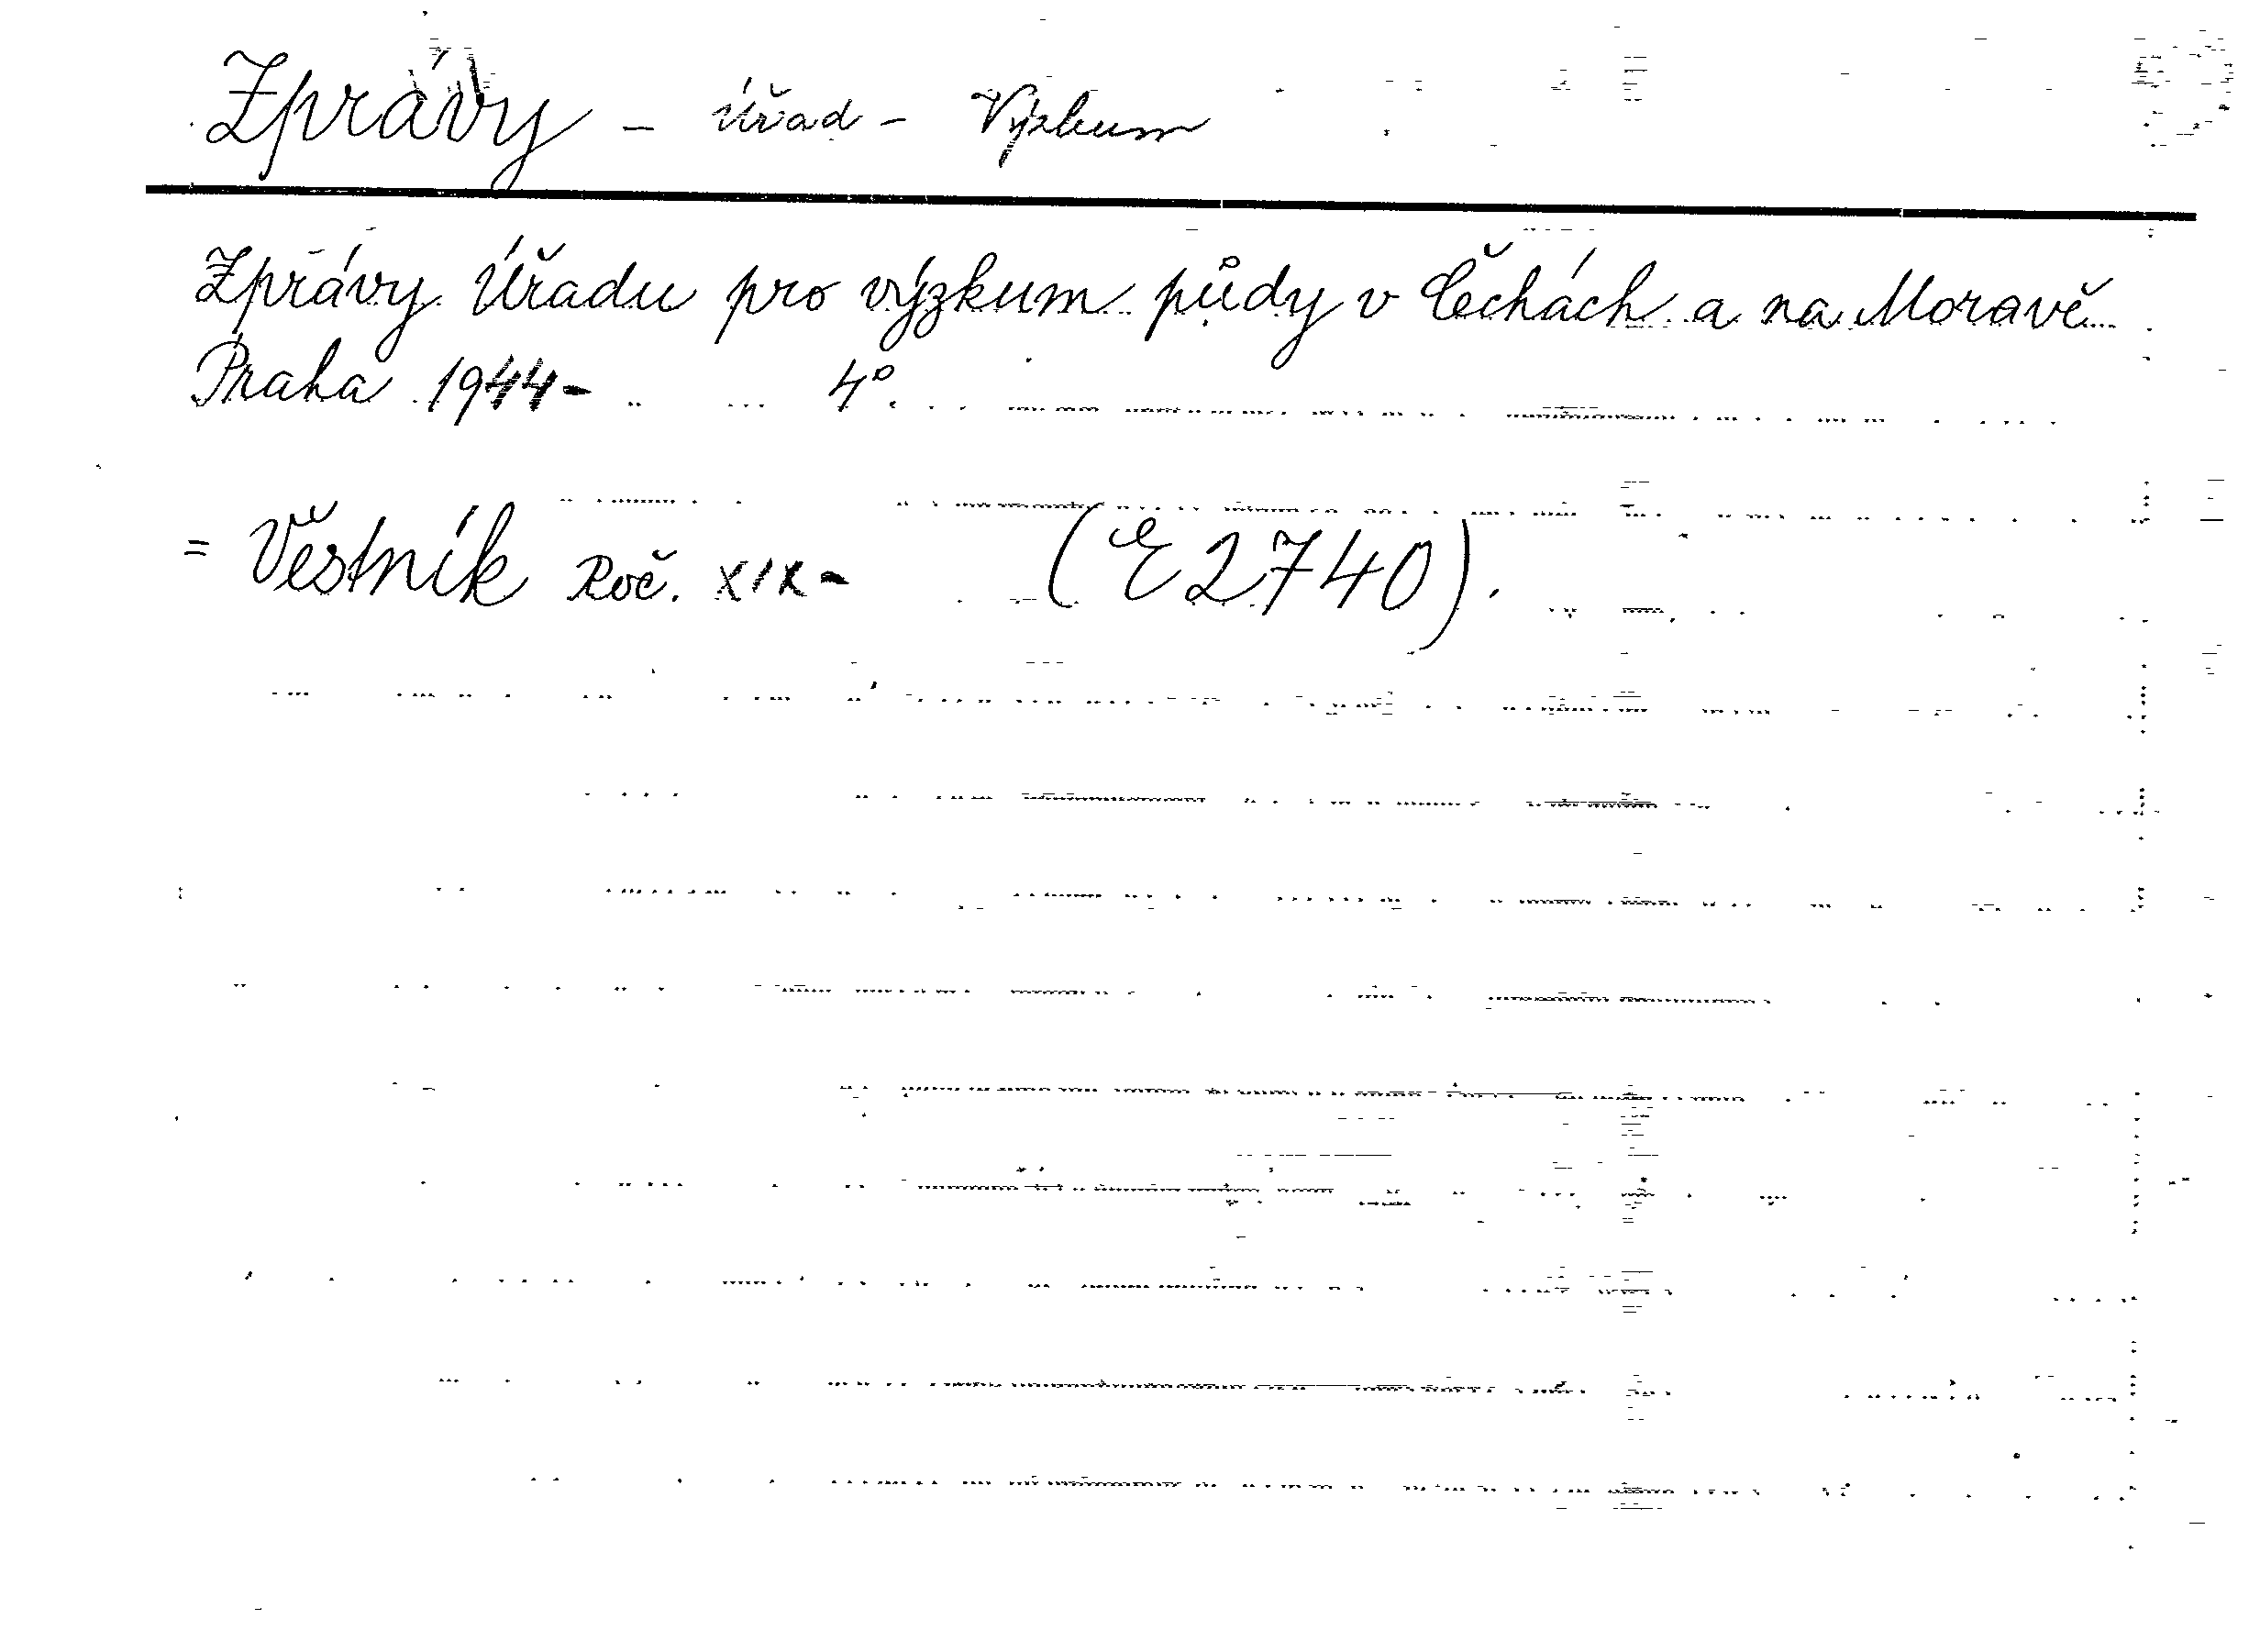 Zprávy – Úřad – Výzkum
Zprávy Úřadu pro výzkum půdy v Čechách a na Moravě
Praha 1944- 4°
= Věstník Roč. XIX- (E 2740).